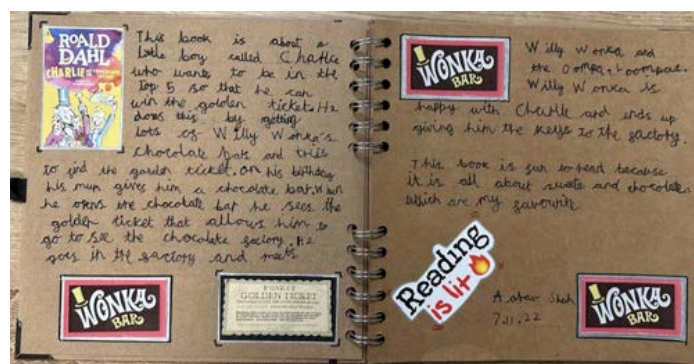 ROALD
DAHL
CHARLIE AND THE CHOCOLATE FACTORY
This book is about a
little boy called Charlie
who wants to be in the
Top 5 so that he can
win the golden ticket. He
does this by getting
lots of Willy Wonka's
chocolate bars and tries
to find the golden ticket. On his birthday
his mum gives him a chocolate bar. When
he opens the chocolate bar he sees the
golden ticket that allows him to
go to see the chocolate factory. He
goes in the factory and meets
WONKA
BAR
WONKA'S
GOLDEN TICKET
WONKA
BAR
Willy Wonka and
the Oompa Loompas.
Willy Wonka is
happy with Charlie and ends up
giving him the keys to the factory.
This book is fun to read because
it is all about sweets and chocolate
which are my favourite
Reading
is lit
Shah
7.11.22
WONKA
BAR